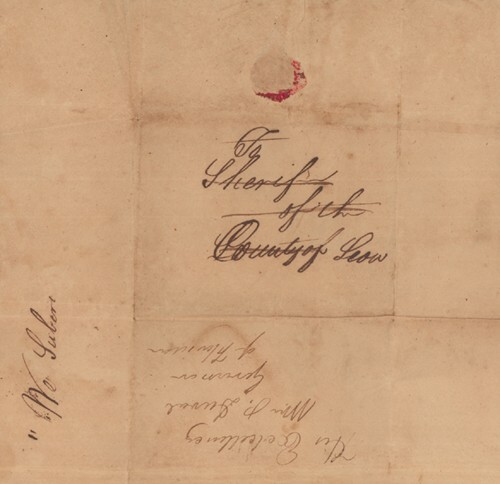 To
Sheriff
of the
County of Leon
His Excellency
Wm P. Duval
Governor
of Florida
"No